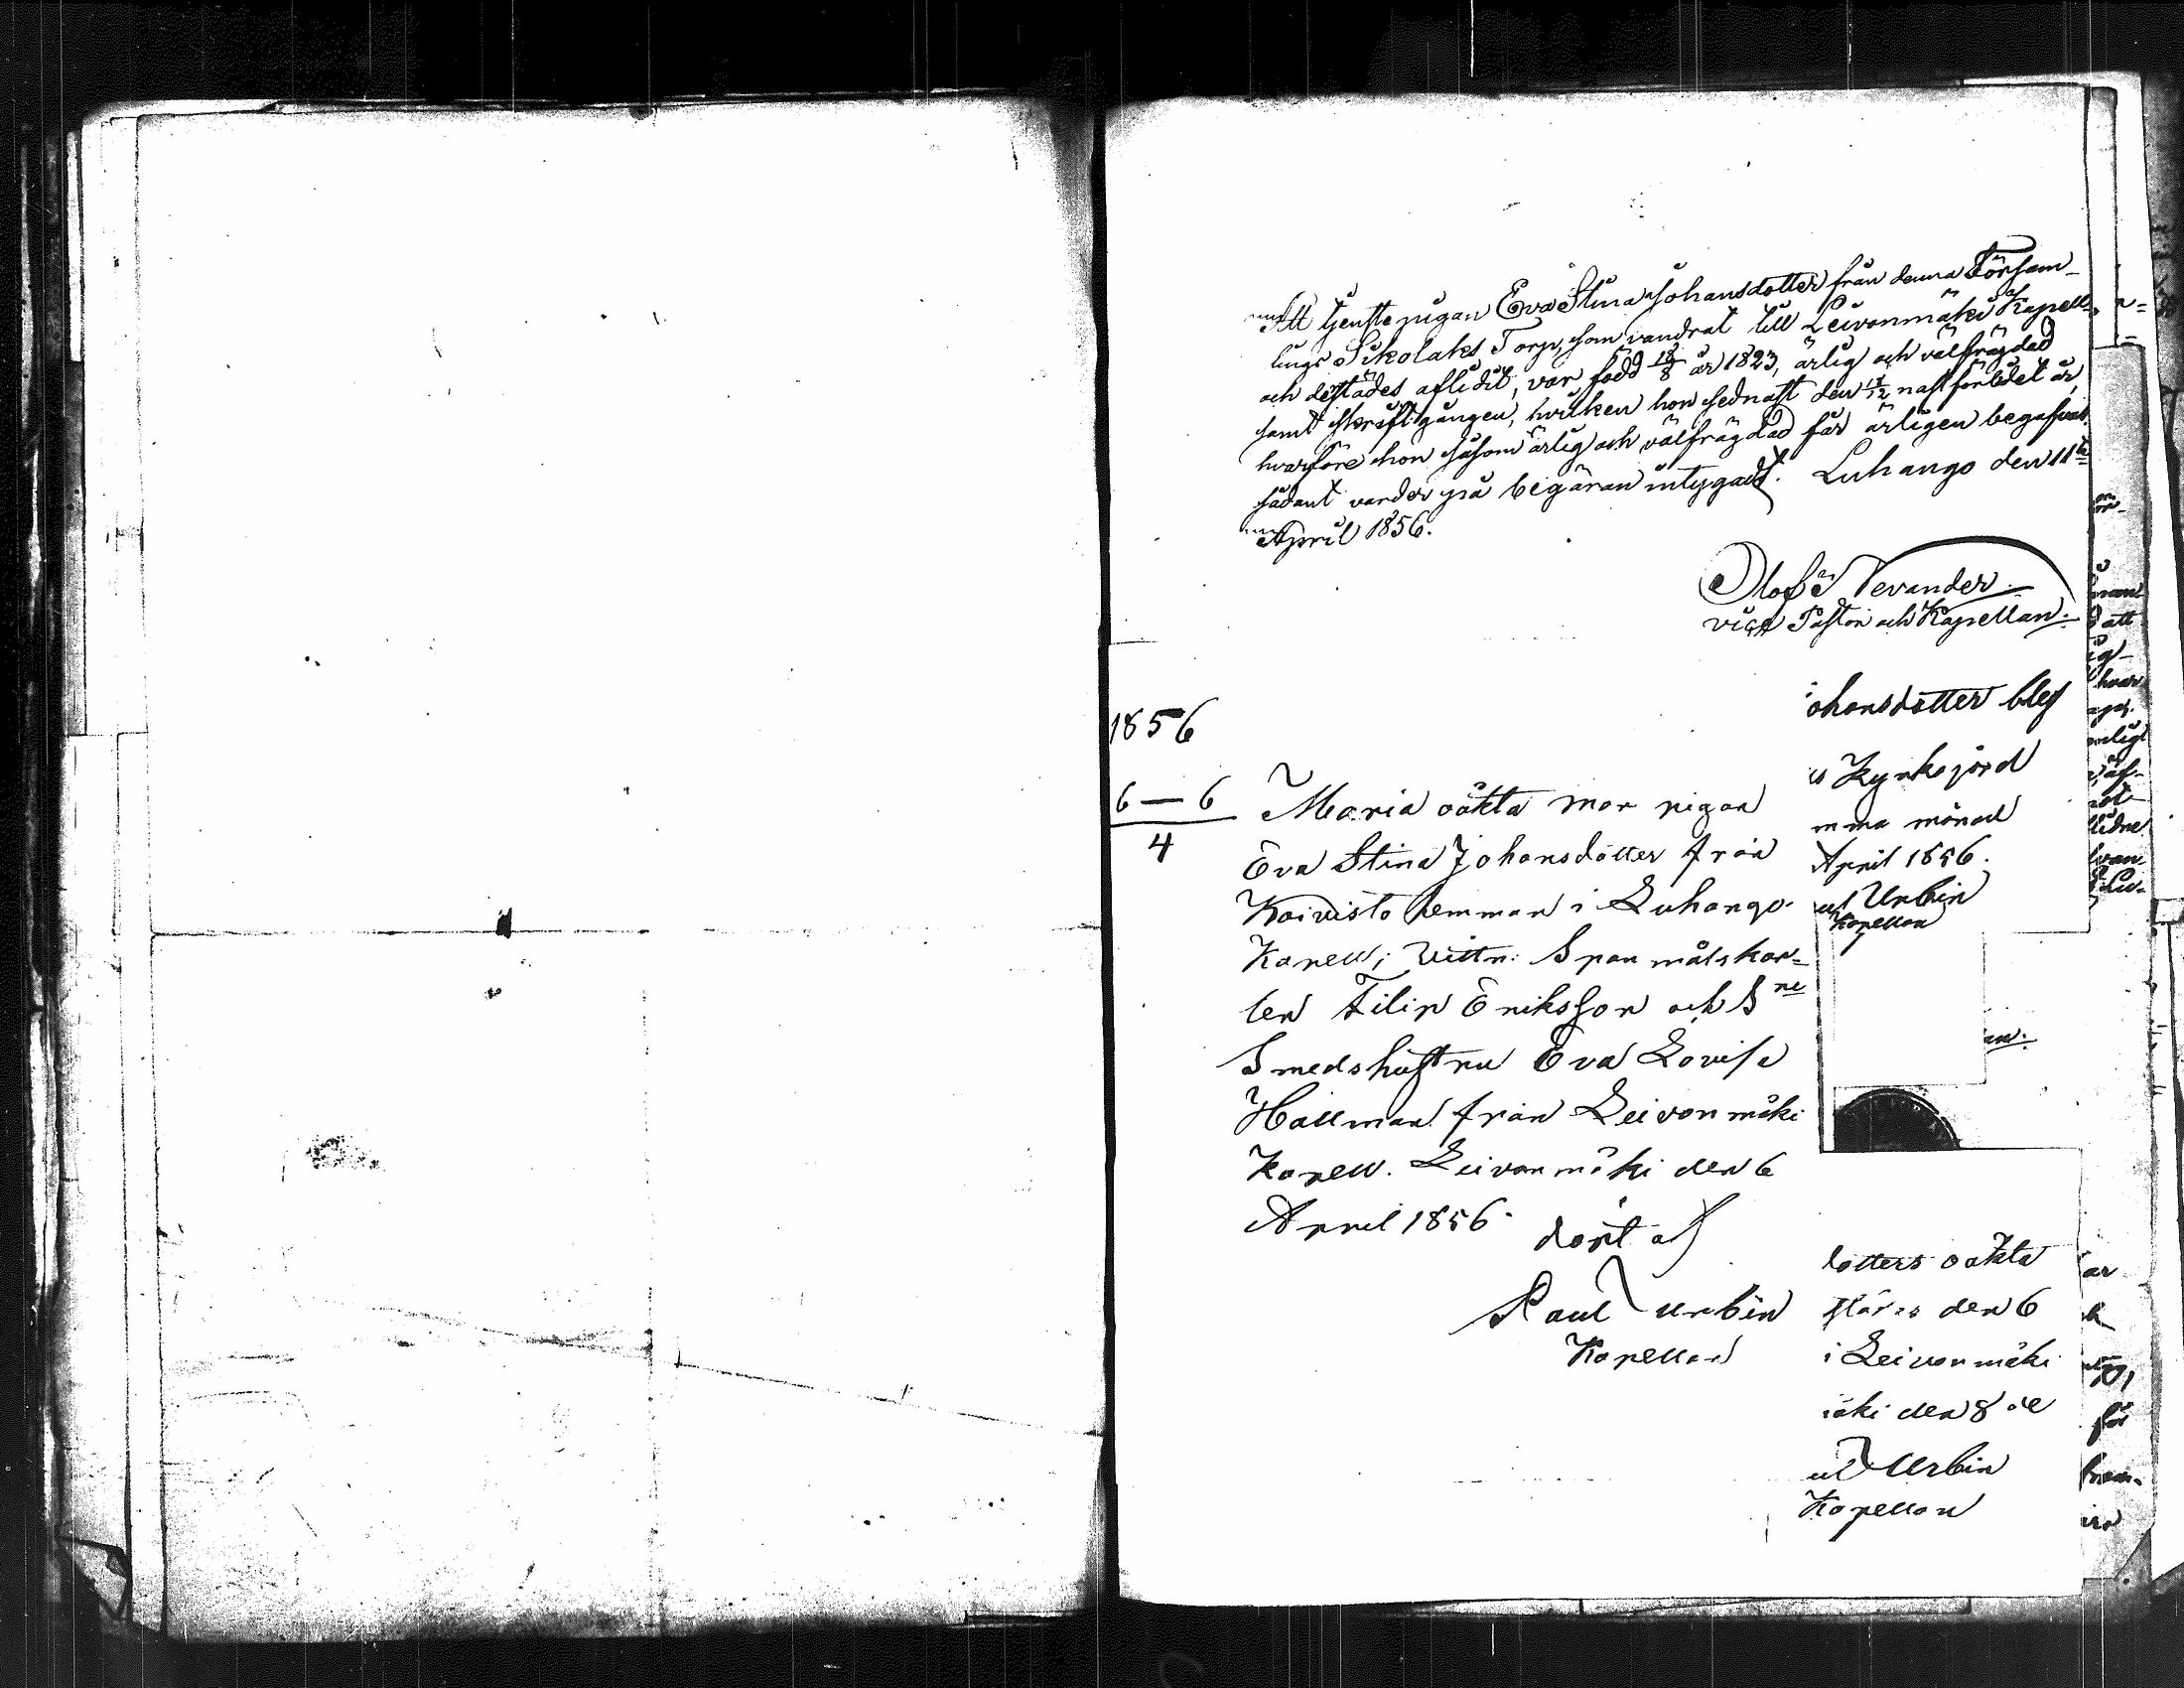 Att tjenstepigan Eva Stina Johansdotter från denna Försam-
lings Sikolaks Torp, som vandrat till Leivonmäki Kapell
och derstädes aflidit, var född 18/8 år 1823, ärlig och välfrägdad
samt skriftgången, hvilken hon sednast den näst förledet år,
hvarföre hon såsom ärlig och välfrägdad får ärligen begrafvas
sådant varder på begäran intygadt. Luhango den 11te
April 1856.
Olof Nevander
vice Pastor och Kapellan.
1856
6 — 6
4
Maria oäkta mor pigan
Eva Stina Johansdotter från
Koivisto hemman i Luhango
Kapell; Vittn: Spanmålskar-
len Filip Eriksson och S
Smedshustru Eva Lovisa
Hallman från Leivonmäki
Kapell. Leivonmäki den 6
April 1856.
döpt af
Paul Urbin
Kapellan
ohansdotter blef
Kyrkojord
mma månad
April 1856.
ul Urbin
Kapellan
an.
dotters oäkta
städes den 6
i Leivonmäki
mäki den 8 de
ul Urbin
Kapellan
att
ig-
hvar
ar
för